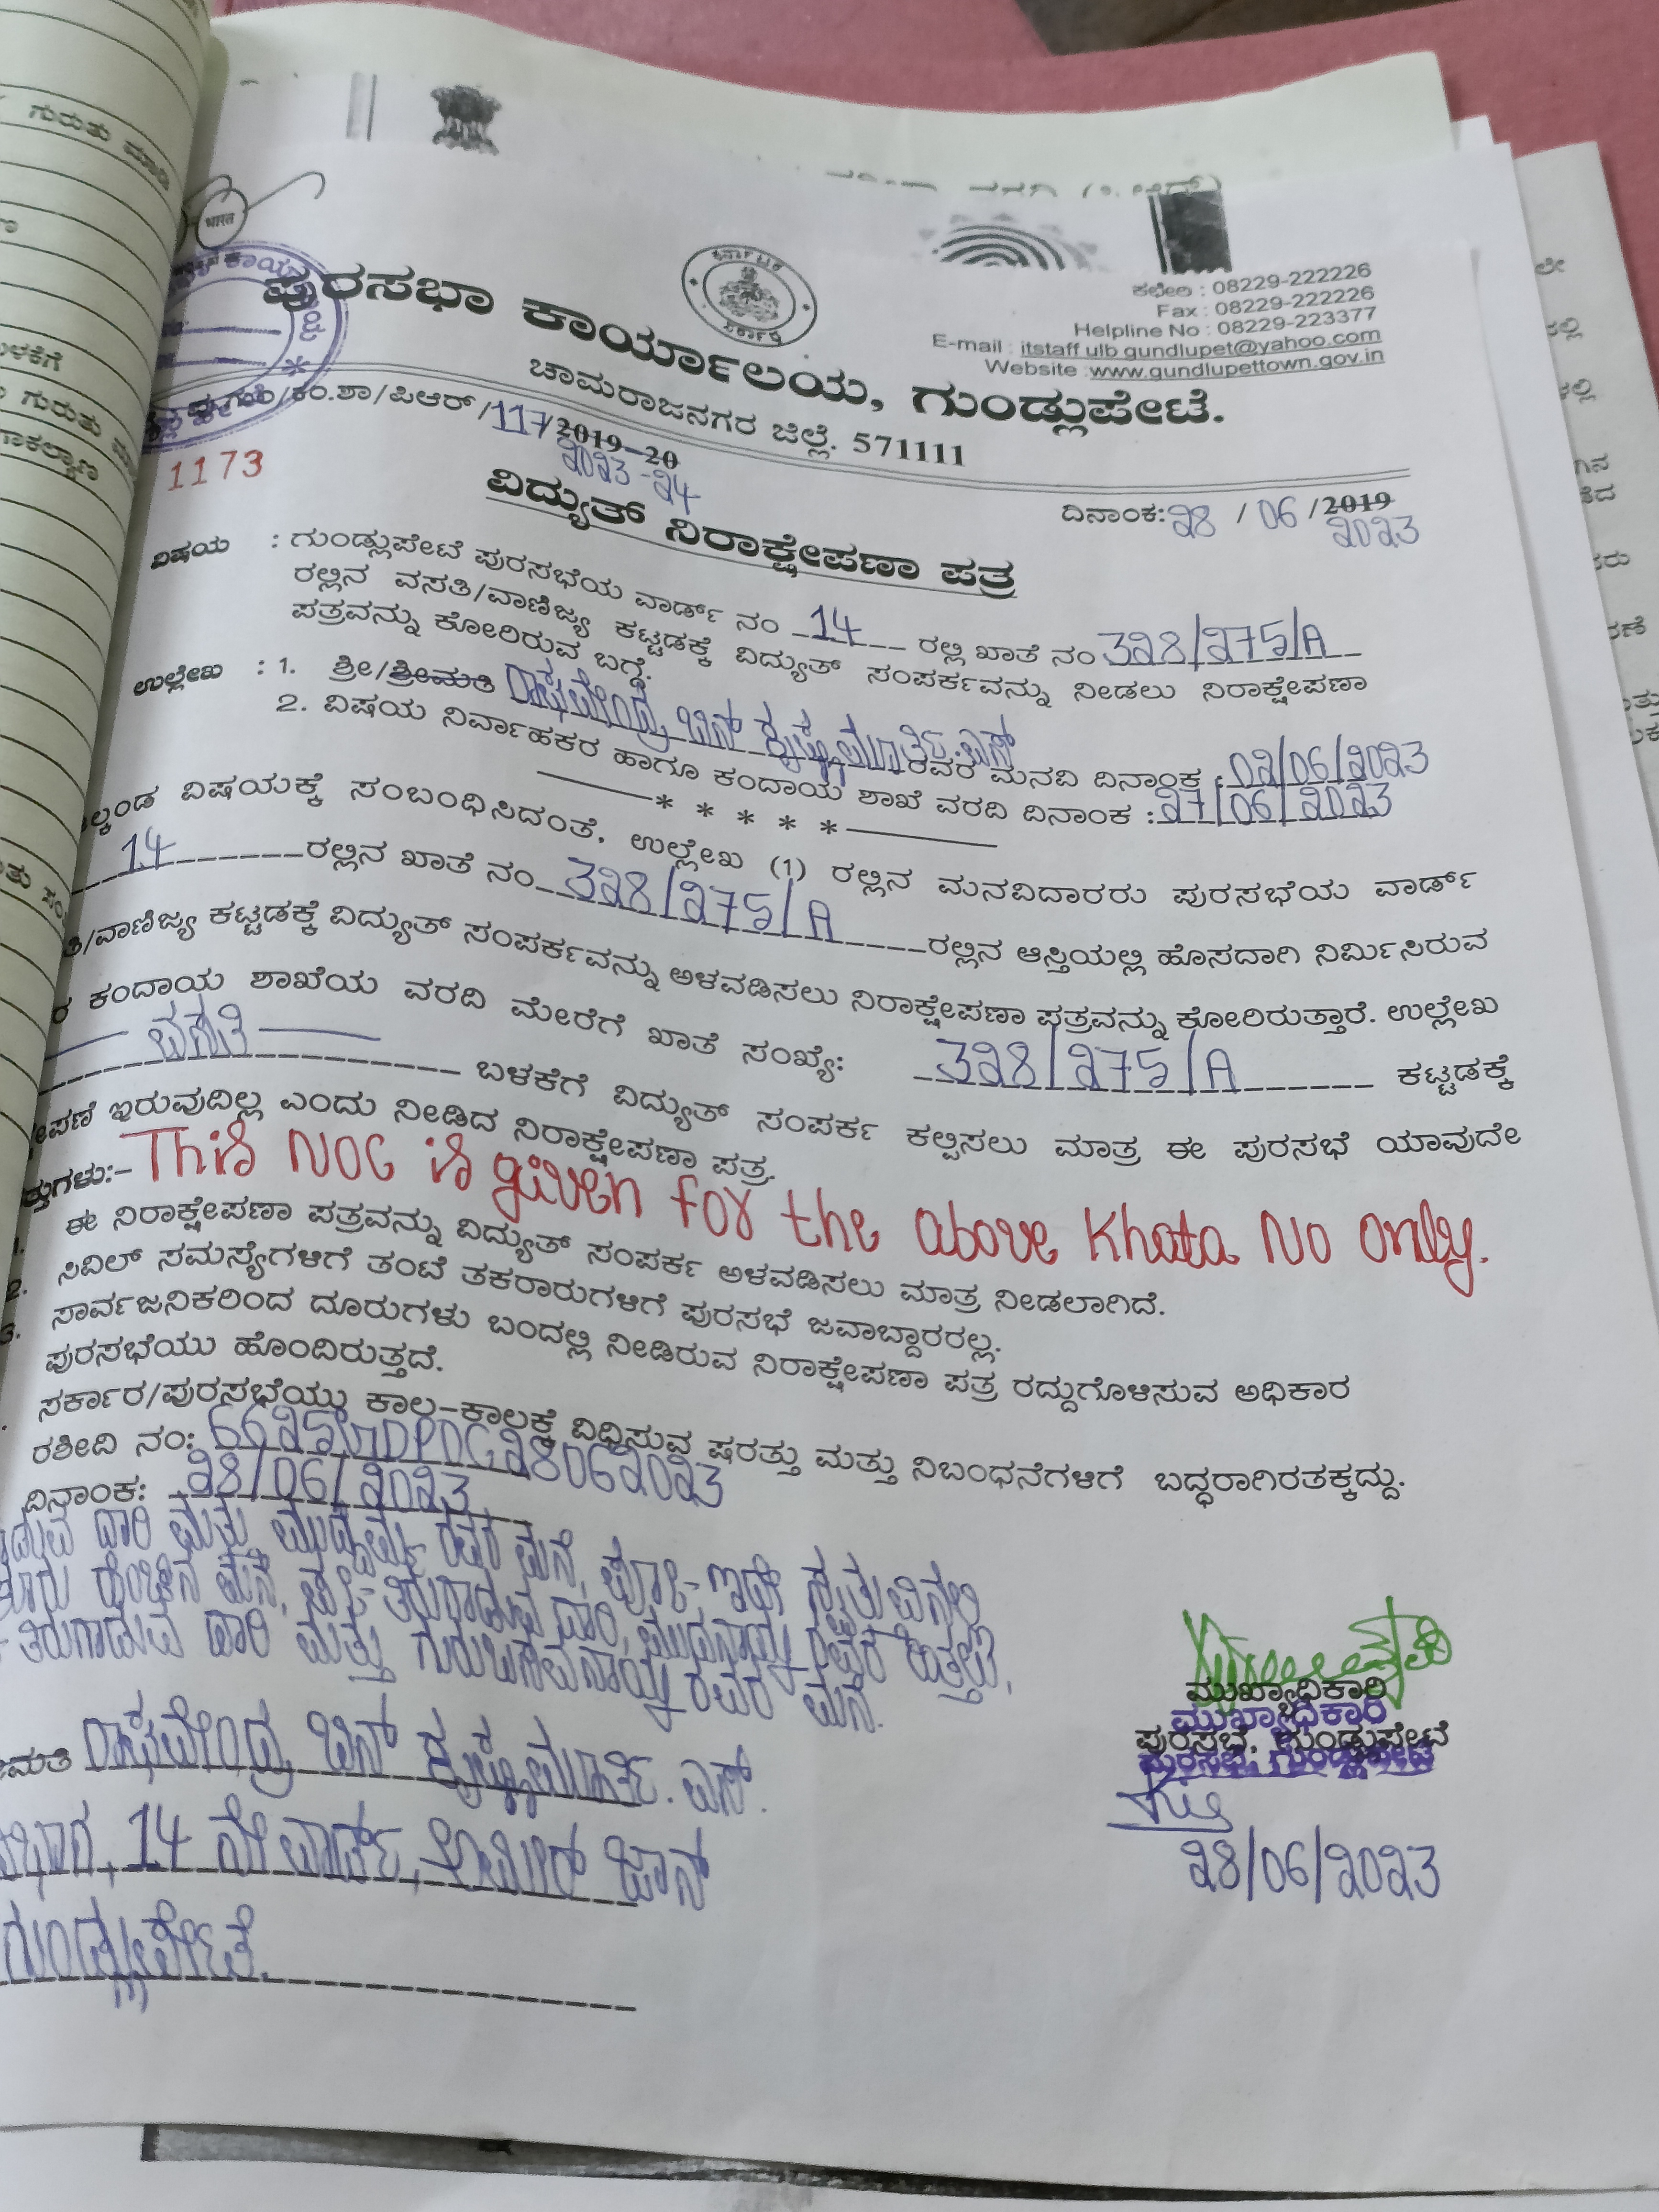 ಗುರುತು ಮಾಡಿ
भारत
ಕರ್ನಾಟಕ
ಸರ್ಕಾರ
ಕಛೇರಿ : 08229-222226
Fax : 08229-222226
Helpline No : 08229-223377
E-mail : itstaff ulb gundlupet@yahoo.com
Website :www.gundlupettown.gov.in
ಪುರಸಭಾ ಕಾರ್ಯಾಲಯ, ಗುಂಡ್ಲುಪೇಟೆ.
ಚಾಮರಾಜನಗರ ಜಿಲ್ಲೆ. 571111
/ಕಂ.ಶಾ/ಪಿಆರ್/117/2019-20
2023-24
1173
ದಿನಾಂಕ:28 / 06 /2019
2023
ವಿದ್ಯುತ್ ನಿರಾಕ್ಷೇಪಣಾ ಪತ್ರ
ವಿಷಯ : ಗುಂಡ್ಲುಪೇಟೆ ಪುರಸಭೆಯ ವಾರ್ಡ್ ನಂ 14 ರಲ್ಲಿ ಖಾತೆ ನಂ 328/275/A
ರಲ್ಲಿನ ವಸತಿ/ವಾಣಿಜ್ಯ ಕಟ್ಟಡಕ್ಕೆ ವಿದ್ಯುತ್ ಸಂಪರ್ಕವನ್ನು ನೀಡಲು ನಿರಾಕ್ಷೇಪಣಾ
ಪತ್ರವನ್ನು ಕೋರಿರುವ ಬಗ್ಗೆ.
ಉಲ್ಲೇಖ : 1. ಶ್ರೀ/ಶ್ರೀಮತಿ ರಾಘವೇಂದ್ರ ಬಿನ್ ಕೃಷ್ಣಮೂರ್ತಿ.ಎಸ್ ರವರ ಮನವಿ ದಿನಾಂಕ :02/06/2023
2. ವಿಷಯ ನಿರ್ವಾಹಕರ ಹಾಗೂ ಕಂದಾಯ ಶಾಖೆ ವರದಿ ದಿನಾಂಕ :27/06/2023
* * * * *
ಲ್ಕಂಡ ವಿಷಯಕ್ಕೆ ಸಂಬಂಧಿಸಿದಂತೆ, ಉಲ್ಲೇಖ (1) ರಲ್ಲಿನ ಮನವಿದಾರರು ಪುರಸಭೆಯ ವಾರ್ಡ್
14 ರಲ್ಲಿನ ಖಾತೆ ನಂ 328/275/A ರಲ್ಲಿನ ಆಸ್ತಿಯಲ್ಲಿ ಹೊಸದಾಗಿ ನಿರ್ಮಿಸಿರುವ
ತಿ/ವಾಣಿಜ್ಯ ಕಟ್ಟಡಕ್ಕೆ ವಿದ್ಯುತ್ ಸಂಪರ್ಕವನ್ನು ಅಳವಡಿಸಲು ನಿರಾಕ್ಷೇಪಣಾ ಪತ್ರವನ್ನು ಕೋರಿರುತ್ತಾರೆ. ಉಲ್ಲೇಖ
ರ ಕಂದಾಯ ಶಾಖೆಯ ವರದಿ ಮೇರೆಗೆ ಖಾತೆ ಸಂಖ್ಯೆ: 328/275/A ಕಟ್ಟಡಕ್ಕೆ
ವಸತಿ ಬಳಕೆಗೆ ವಿದ್ಯುತ್ ಸಂಪರ್ಕ ಕಲ್ಪಿಸಲು ಮಾತ್ರ ಈ ಪುರಸಭೆ ಯಾವುದೇ
ೇಪಣೆ ಇರುವುದಿಲ್ಲ ಎಂದು ನೀಡಿದ ನಿರಾಕ್ಷೇಪಣಾ ಪತ್ರ.
ತ್ತುಗಳು:- This NOC is given for the above Khata No only.
ಈ ನಿರಾಕ್ಷೇಪಣಾ ಪತ್ರವನ್ನು ವಿದ್ಯುತ್ ಸಂಪರ್ಕ ಅಳವಡಿಸಲು ಮಾತ್ರ ನೀಡಲಾಗಿದೆ.
2. ಸಿವಿಲ್ ಸಮಸ್ಯೆಗಳಿಗೆ ತಂಟೆ ತಕರಾರುಗಳಿಗೆ ಪುರಸಭೆ ಜವಾಬ್ದಾರರಲ್ಲ.
3. ಸಾರ್ವಜನಿಕರಿಂದ ದೂರುಗಳು ಬಂದಲ್ಲಿ ನೀಡಿರುವ ನಿರಾಕ್ಷೇಪಣಾ ಪತ್ರ ರದ್ದುಗೊಳಿಸುವ ಅಧಿಕಾರ
ಪುರಸಭೆಯು ಹೊಂದಿರುತ್ತದೆ.
ಸರ್ಕಾರ/ಪುರಸಭೆಯು ಕಾಲ-ಕಾಲಕ್ಕೆ ವಿಧಿಸುವ ಷರತ್ತು ಮತ್ತು ನಿಬಂಧನೆಗಳಿಗೆ ಬದ್ಧರಾಗಿರತಕ್ಕದ್ದು.
ರಶೀದಿ ನಂ:
ದಿನಾಂಕ: 28/06/2023
ದಾರಿ ಮತ್ತು ರವರ ಮನೆ,
ಹೆಂಚಿನ ಮನೆ, ತಿರುಗಾಡುವ ದಾರಿ, ರವರ ಹಿತ್ತಲು,
ತಿರುಗಾಡುವ ದಾರಿ ಮತ್ತು ಗುರುಬಸವನಾಯ್ಕ ರವರ ಮನೆ.
ಮತಿ ರಾಘವೇಂದ್ರ ಬಿನ್ ಕೃಷ್ಣಮೂರ್ತಿ. ಎಸ್.
14 ನೇ ವಾರ್ಡ್, ಜಾನ್
ಗುಂಡ್ಲುಪೇಟೆ.
ಮುಖ್ಯಾಧಿಕಾರಿ
ಮುಖ್ಯಾಧಿಕಾರಿ
ಪುರಸಭೆ, ಗುಂಡ್ಲುಪೇಟೆ
ಪುರಸಭೆ, ಗುಂಡ್ಲುಪೇಟೆ
28/06/2023